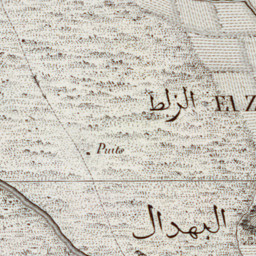 الزلط EL Z
Puits
البهدال